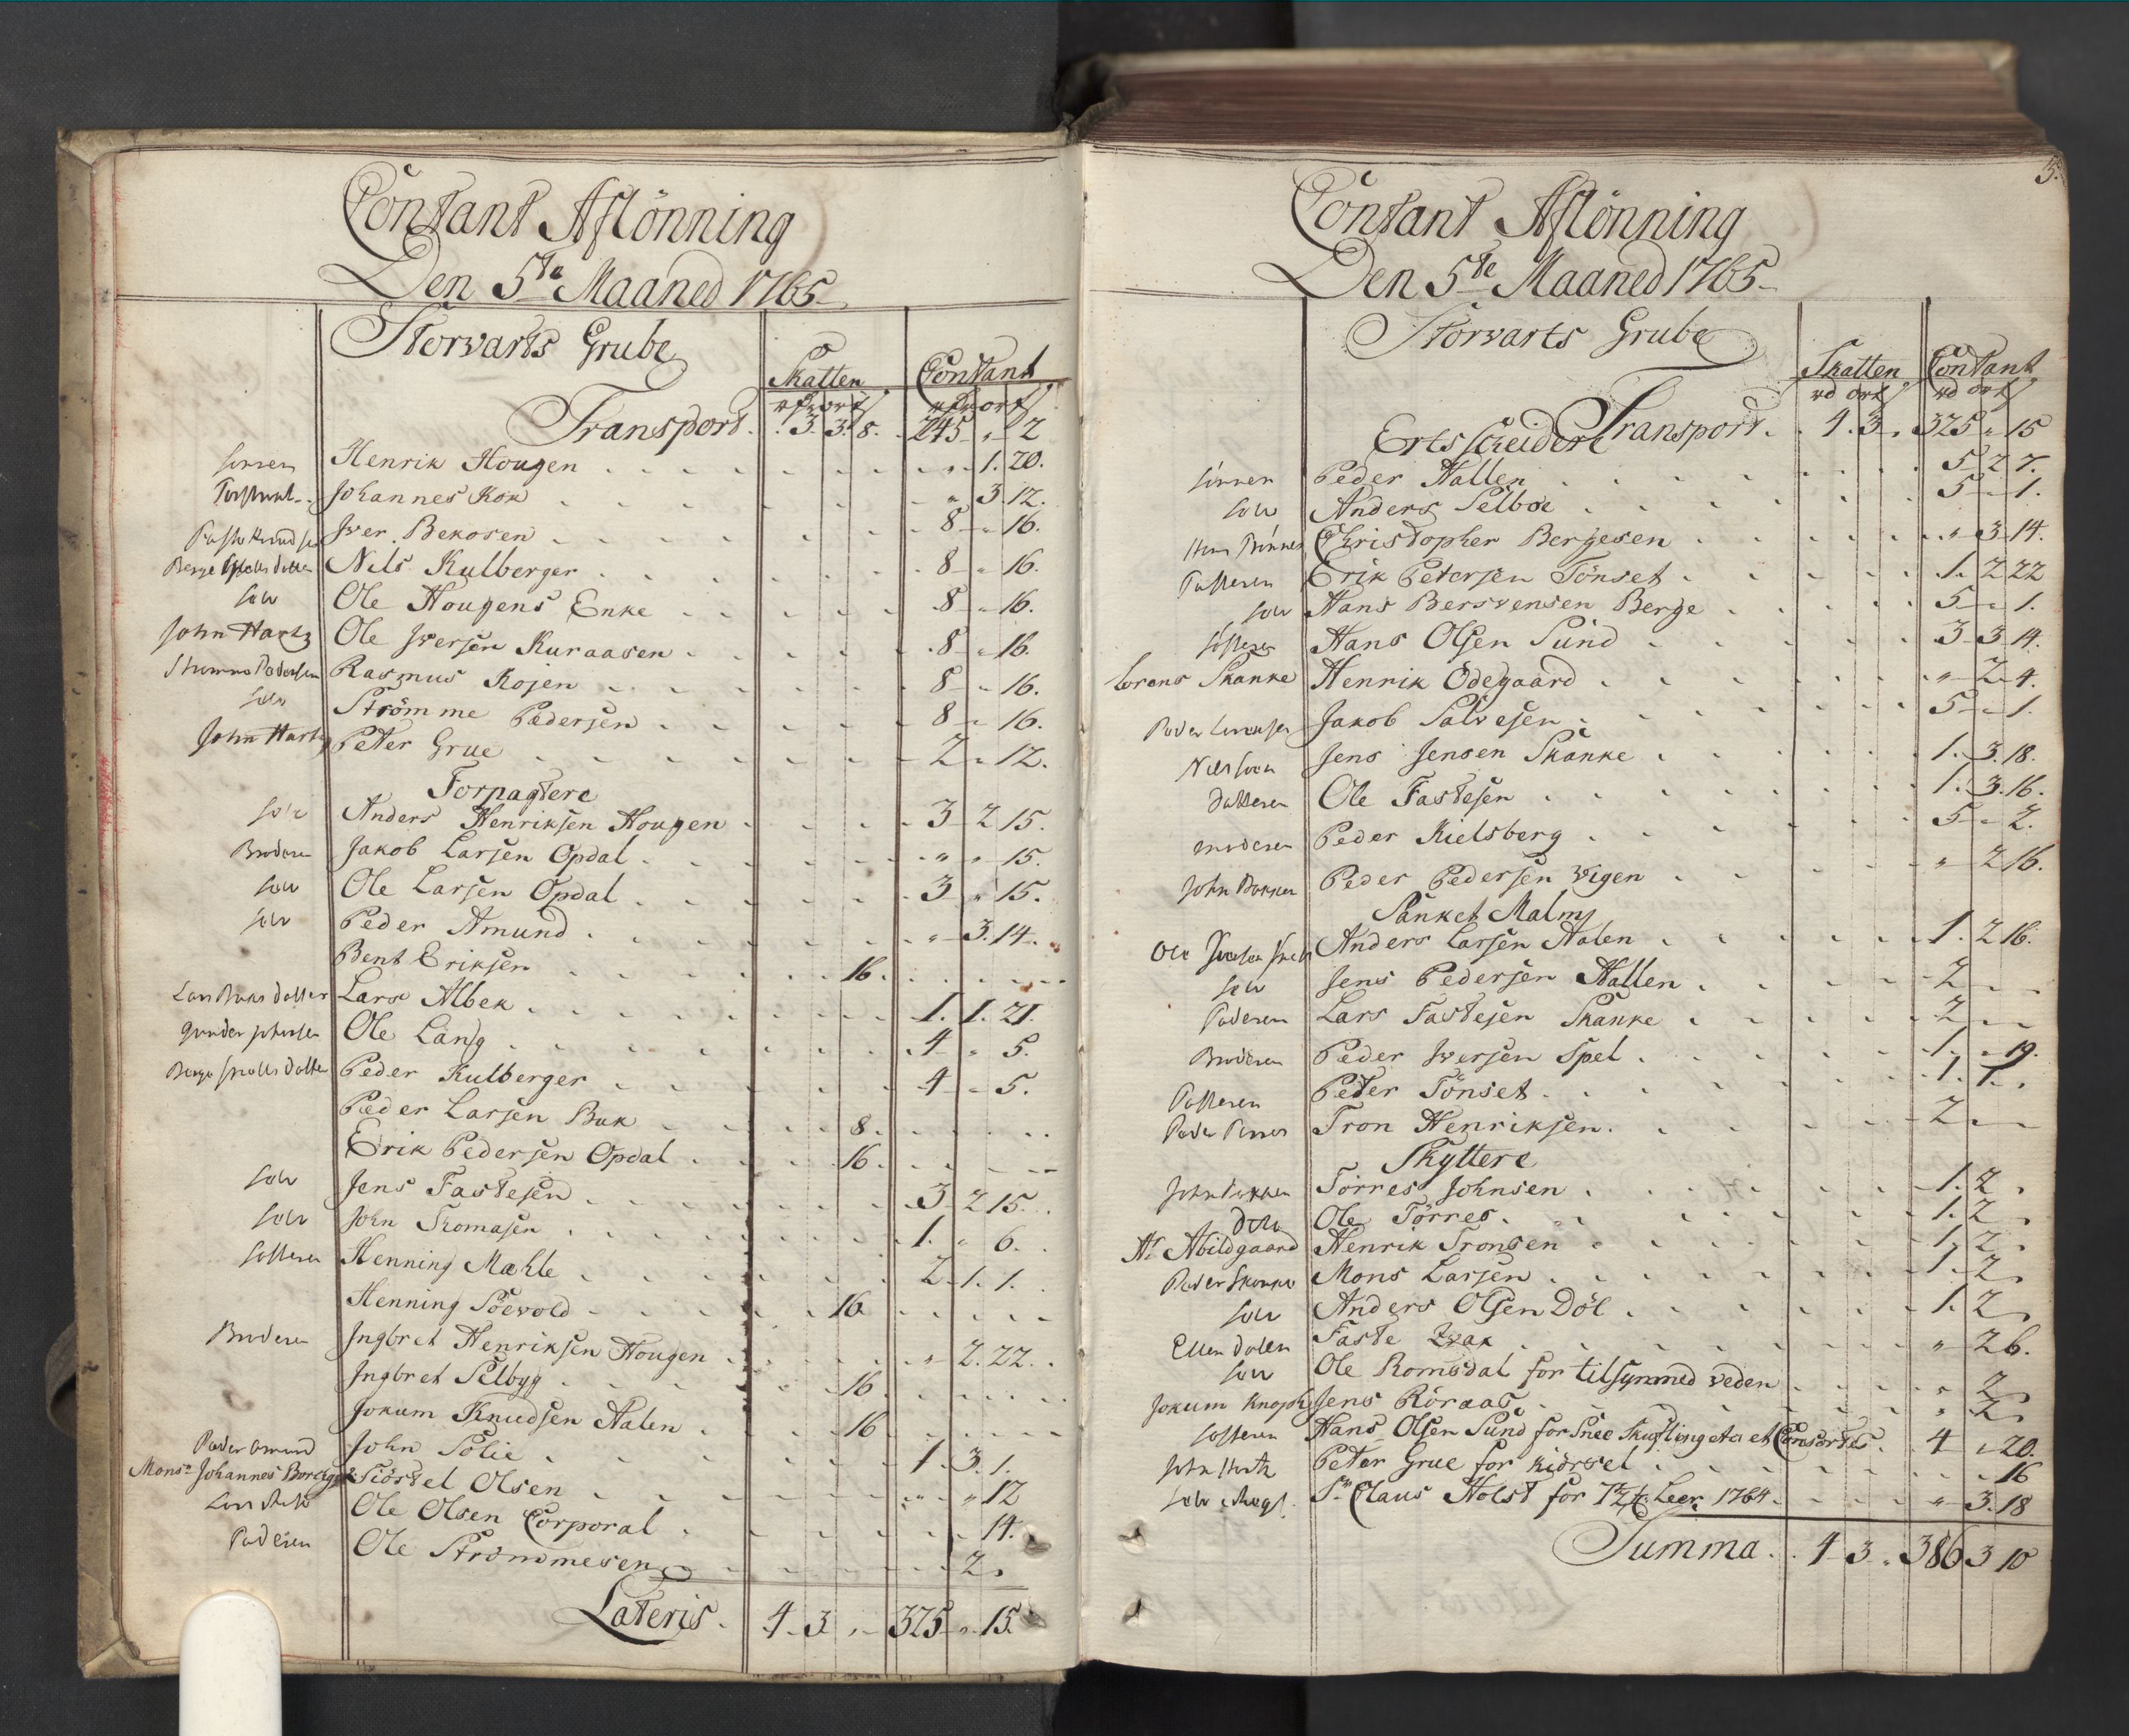 Contant Aflönning
Den 5te Maaned 1765
Storvarts Grube
Skatten Contant
ort ort
Transport 3 3 8 245 " 2
Henrik Hougen " 1. 20.
Johannes Kok " 3. 12.
Iver Bekosen 8 " 16.
Nils Kulberger 8 " 16.
selv Ole Hougens Enke 8 " 16.
John Hartz Ole Iversen Kuraasen 8 " 16.
Strömme Pedersen Rasmus Kojen 8 " 16.
selv Strömme Pedersen 8 " 16.
John Hartz Peter Grue 2 " 12.
Forpagtere
selv Anders Henriksen Hougen 3 2 15.
Broderen Jakob Larsen Opdal " " 15.
selv Ole Larsen Opdal 3 " 15.
selv Peder Amund " 3. 14.
Bent Eriksen 16.
Lars Albek 1. 1. 21.
Ole Lang 4 " 5.
Peder Kulberger 4 " 5.
Peder Larsen Buk 8.
Erik Pedersen Opdal 16.
selv Jens Fastesen 3 2 15.
selv John Thomasen 1. " 6.
Henning Mæhle 2 1. 1.
Henning Söevold 16.
Broderen Ingbret Henriksen Hougen " 2. 22.
Ingbret Selbyg 16
Jokum Knudsen Aalen 16
Peder Amund John Solie 1. 3. 1.
Johannes Siöstel Olsen " " 12
Ole Olsen Corporal 14.
Faderen Ole Strömmesen 2 "
Lateris 4 3 " 325 " 15.
3.
Contant Aflönning
Den 5te Maaned 1765
Storvarts Grube
Skatten Contant
rd ort rd ort
Transport 4 3 " 325 " 15
Ertsscheidere
Peder Hallen 5 2 7.
selv Anders Selboe 5 " 1.
Christopher Bergesen " 3 14.
Erik Petersen Tönset 1. 2 22
selv Hans Bersvensen Berge 5 " 1.
Hans Olsen Sund 3 3 14.
Lorens Skanke Henrik Ödegaard " 2 4.
Jakob Salvesen 5 " 1.
Jens Jensen Skanke 1. 3. 18.
Ole Fastesen 1. 3. 16.
Moderen Peder Kielsberg 5 " 2.
John Bekken Peder Pedersen Vigen " 2 16.
Sanket Malm
Anders Larsen Aalen 1. 2 16.
selv Jens Pedersen Hallen 2
Faderen Lars Fastesen Skanke 2
Broderen Peder Iversen Spel 1. " 19.
Peter Tönset 1. 1. "
Tron Henriksen 2
Skyttere
Törres Johnsen 1. 2 "
Ole Törres 1. 2 "
Hr Abildgaard Henrik Tronsen 1. 2 "
Peder Skanke Mons Larsen 1. 2 "
selv Anders Olsen Döl 1. 2 "
Faste Qvak " 2 6.
selv Ole Romsdal for tilsyn med veden " 2 "
Jokum Knoph Jens Röraas " 2 "
Hans Olsen Sund for Snee Skufling etc: et Consortes 4 " 20.
John Hartz Peter Grue for kiörsel 16
Sr Claus Holst for Leer 1764 " 3. 18
Summa 4 3 " 386 3 10